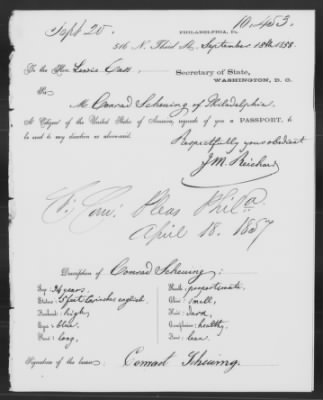 Sept 20.
10.453.
PHILADELPHIA, PA.
516 N. Third St., September 18th 1858.
To the Hon. Lewis Cass
Secretary of State,
WASHINGTON, D. C.
Sir
Mr Conrad Scheuing of Philadelphia
A Citizen of the United States of America, requests of you a PASSPORT, to
be sent to my direction as abovesaid.
Respectfully your obedient
J. M. Reichard
Ct. Com. Pleas Phila.
April 18. 1857
Description of Conrad Scheuing:
Age: 34 years.
Stature: 5 feet 6 inches english.
Forehead: high,
Eyes: blue.
Nose: long,
Mouth: proportionate.
Chin: small,
Hair: dark,
Complexion: healthy,
Face: lean.
Signature of the bearer: Conrad Scheuing.